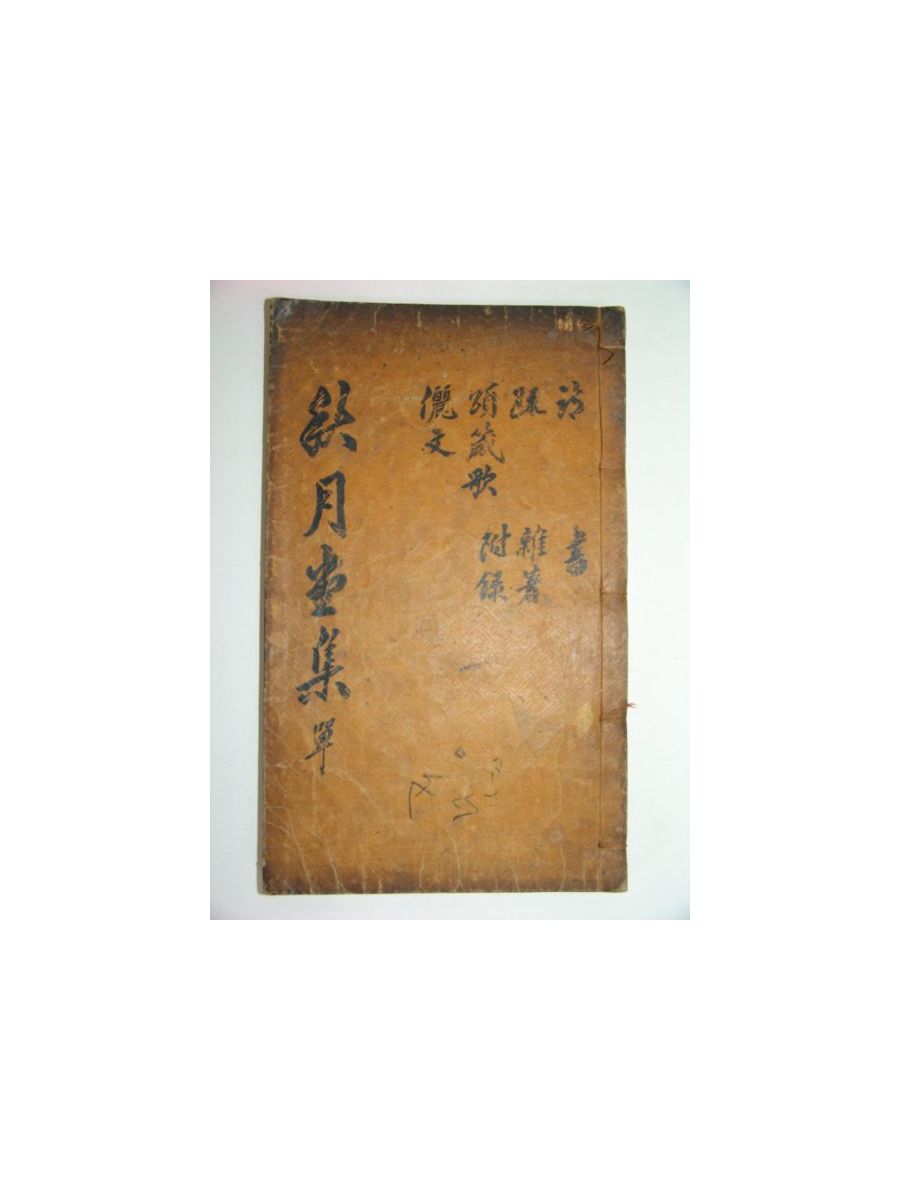 詩 書
踈 雜著
頌箴歌 附錄
儷文
秋月堂集 單